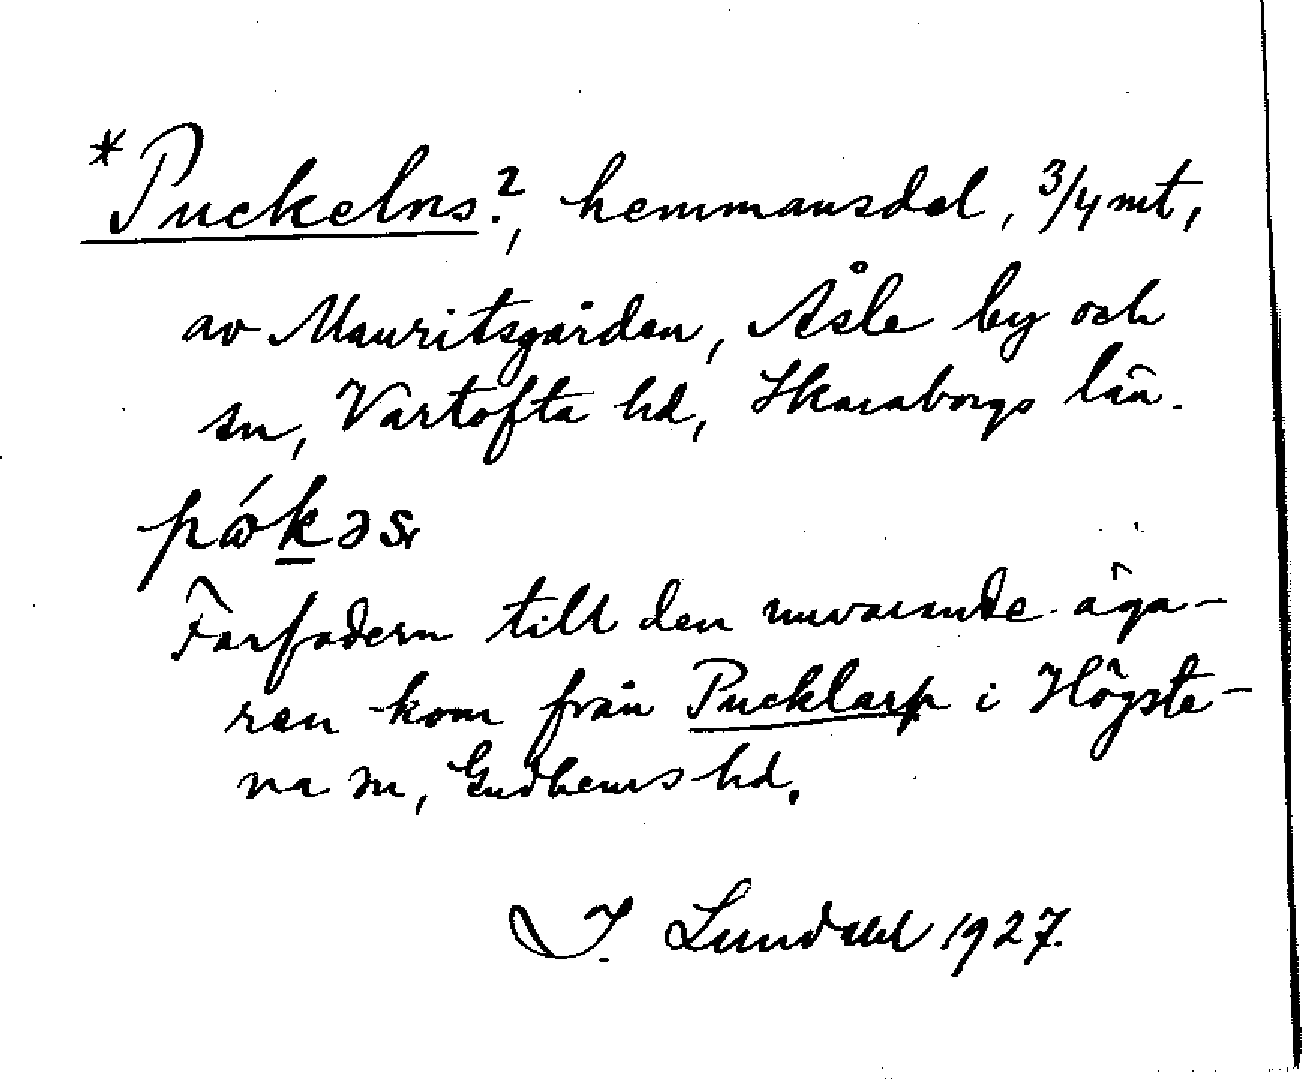 *Puckelns?, hemmansdel, 3/4 mt,
av Mauritsgården, Åsle by och
sn, Vartofta hd, Skaraborgs län.
Farfadern till den nuvarande äga-
ren kom från Pucklarp i Högste-
na sn, Gudhems hd.
I. Lundahl 1927.